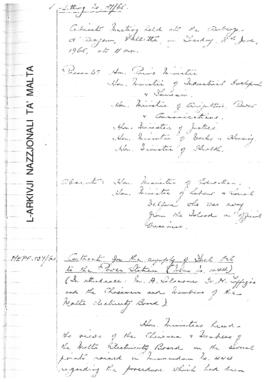 Sitting No. 27/66.
Cabinet Meeting held at the Auberge
d'Aragon, Valletta on Tuesday, 8th June,
1966, at 11 a.m.
Present: Hon. Prime Minister
Hon. Minister of Industrial Development
& Tourism.
Hon. Minister of Agriculture, Power
& Communications.
Hon. Minister of Justice
Hon. Minister of Works & Housing
Hon. Minister of Health.
Absent: Hon. Minister of Education.
Hon. Minister of Labour & Social
Welfare who was away
from the Island on official
business.
L-ARKIVJI NAZZJONALI TA' MALTA
Contract for the supply of Fuel Oil
to the Power Station
(In attendance:
and the Chairman and Members of the
Malta Electricity Board)
Hon. Ministers heard
the views of the Chairman & Members of
the Malta Electricity Board on the several
points raised in Memorandum No. 444
regarding the procedure which had been